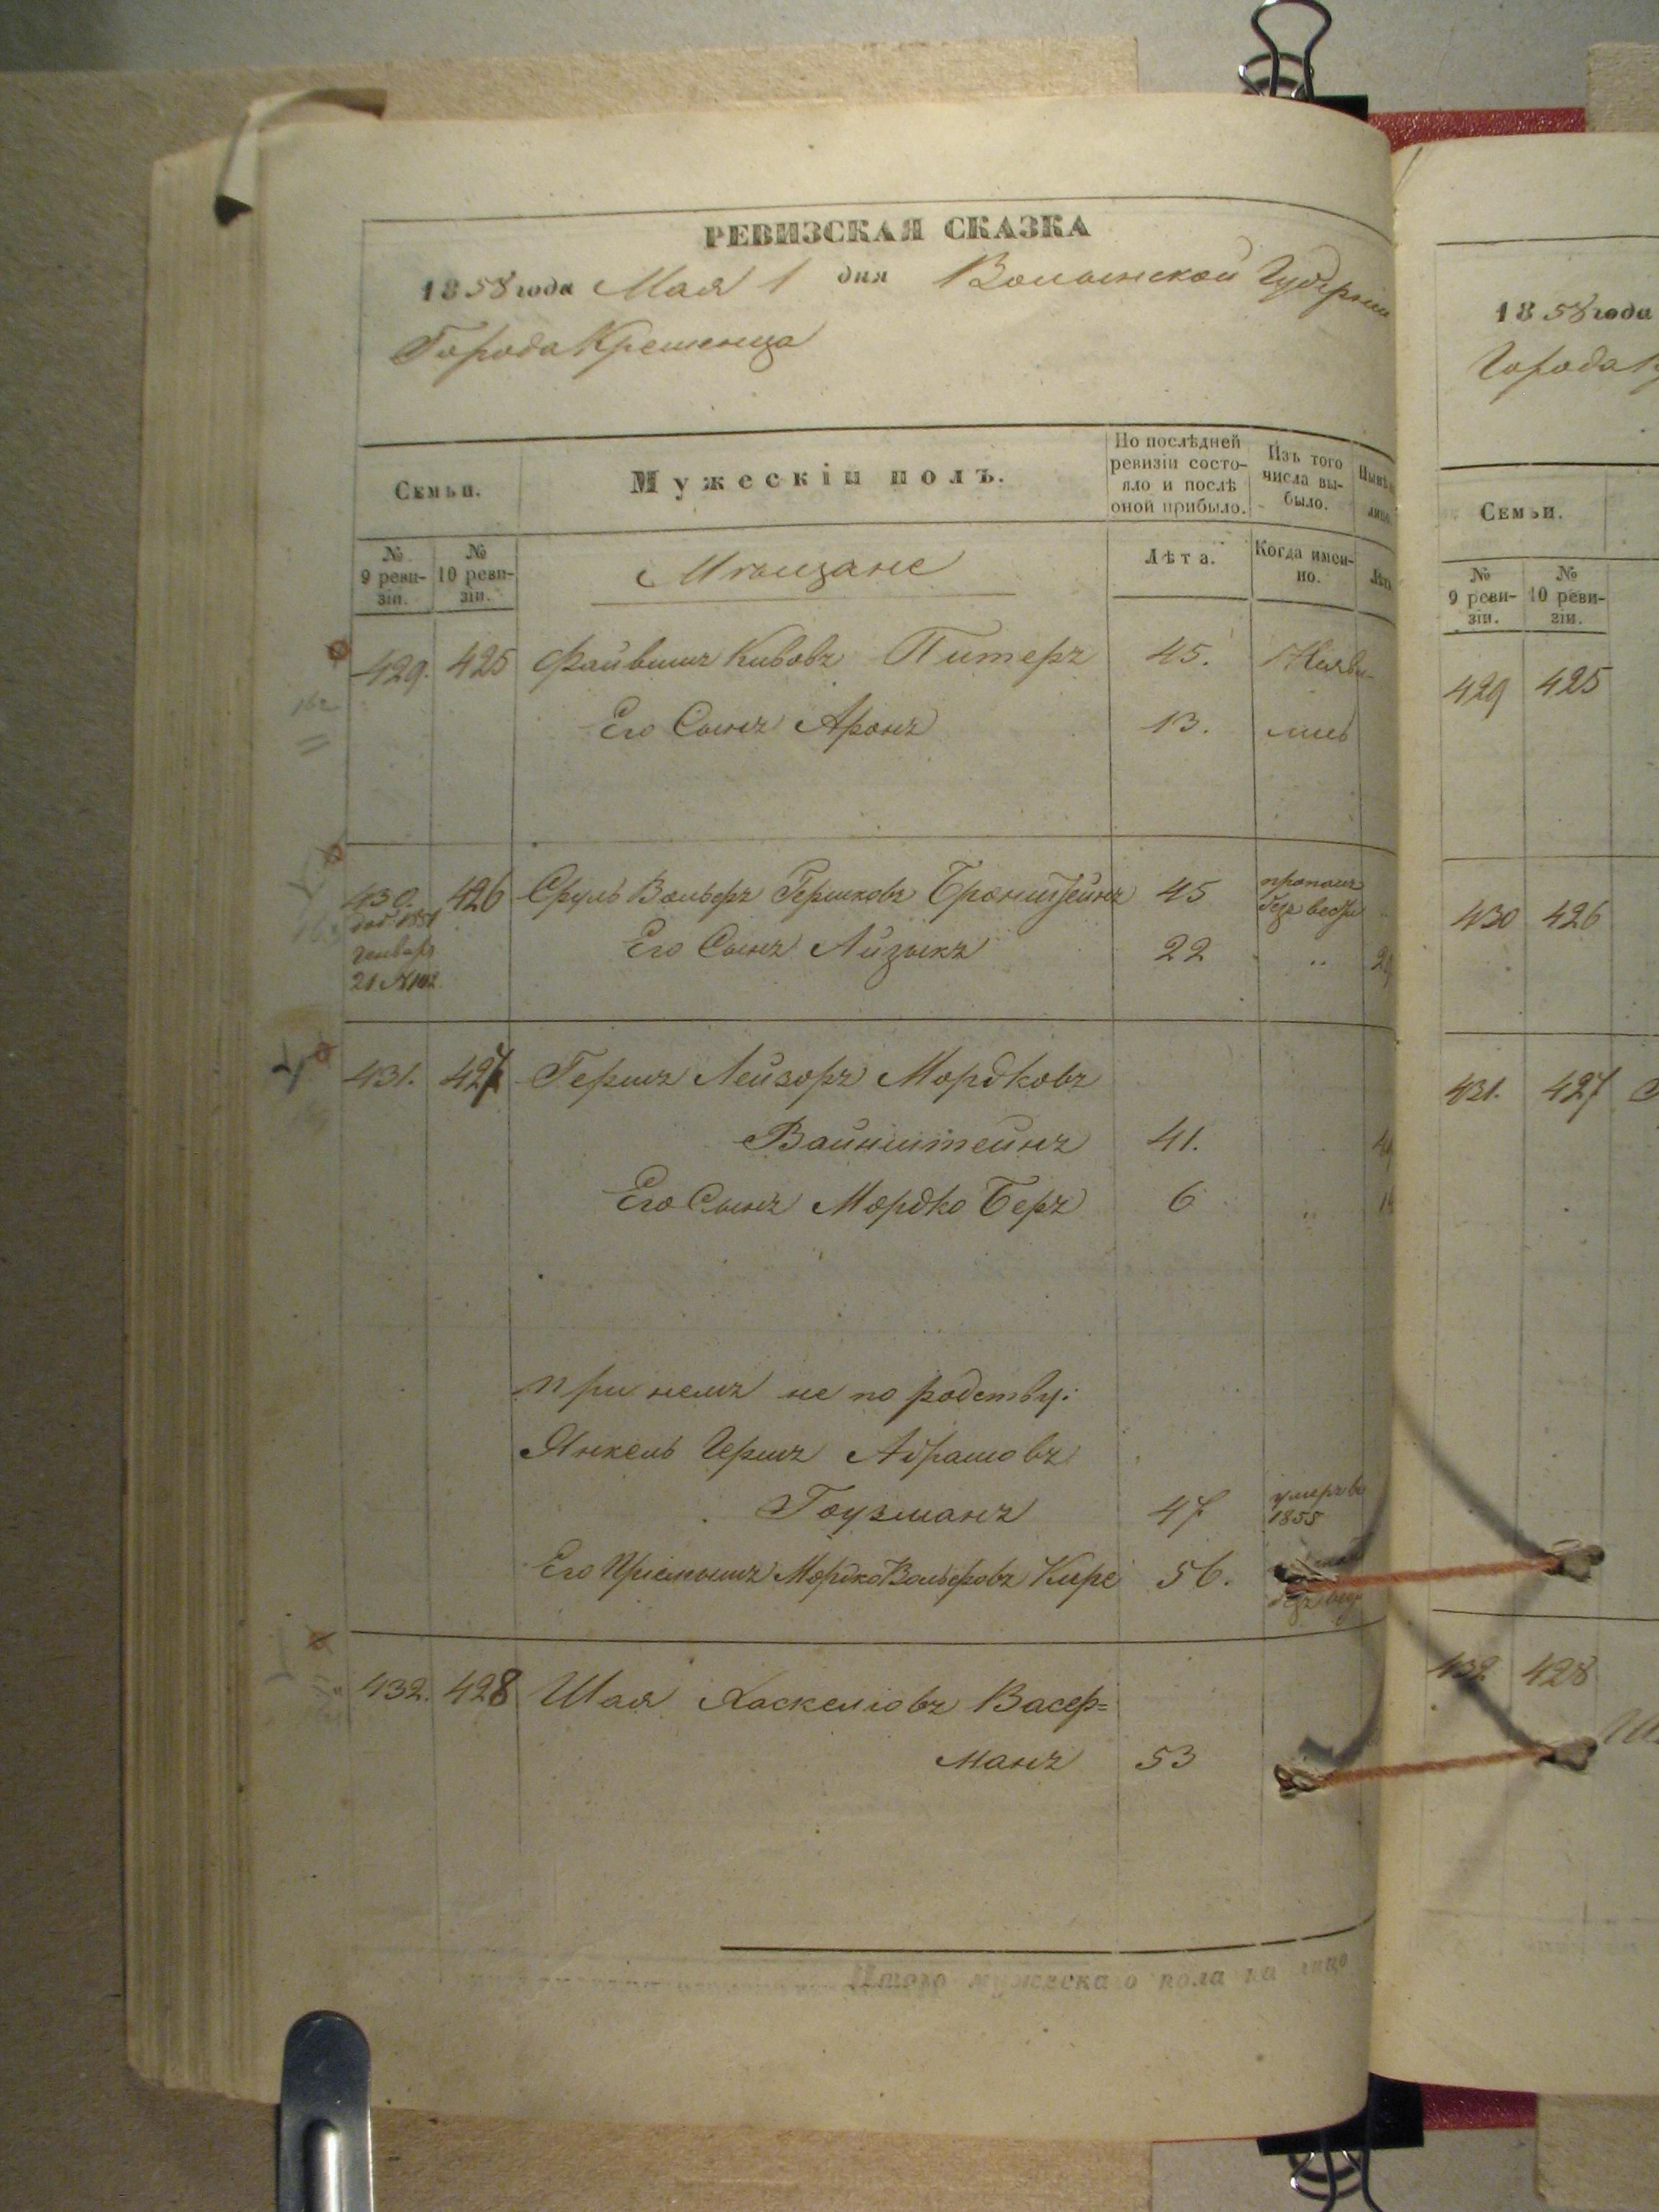 РЕВИЗСКАЯ СКАЗКА
1858 года Мая 1 дня Волынской Губернии
Города Кременца
Семьи.
Мужескій полъ.
По послѣдней ревизіи состо-
яло и послѣ
оной прибыло.
Изъ того
числа вы-
было.
№
9 реви-
зіи.
№
10 реви-
зіи.
Мѣщане
Лѣта.
Когда имен-
но.
429. 425 Файвишъ Кивовъ Питеръ 45.
Его Сынъ Аронъ 13.
430. 426 Сруль Вольфъ Гершковъ Бронштейнъ 45 пропалъ
безъ вести
доб. 1851
Генваря
21 №
Его Сынъ Айзыкъ 22 "
431. 427 Гершъ Лейзоръ Мордковъ
Вайнштейнъ 41.
Его Сынъ Мордко Беръ 6 "
при немъ не по родству:
Янкель Гершъ Абрамовъ
Гоузманъ 47 умеръ въ
1855
Его Пріемышъ Мордко Вольфовъ 56.
безъ
432. 428 Шая Хаскеліовъ Васер=
манъ 53
Итого мужеска о пола на лицо
1858 года
Города
Семьи.
№
9 реви-
зіи.
№
10 реви-
зіи.
429 425
430 426
431. 427
432. 428